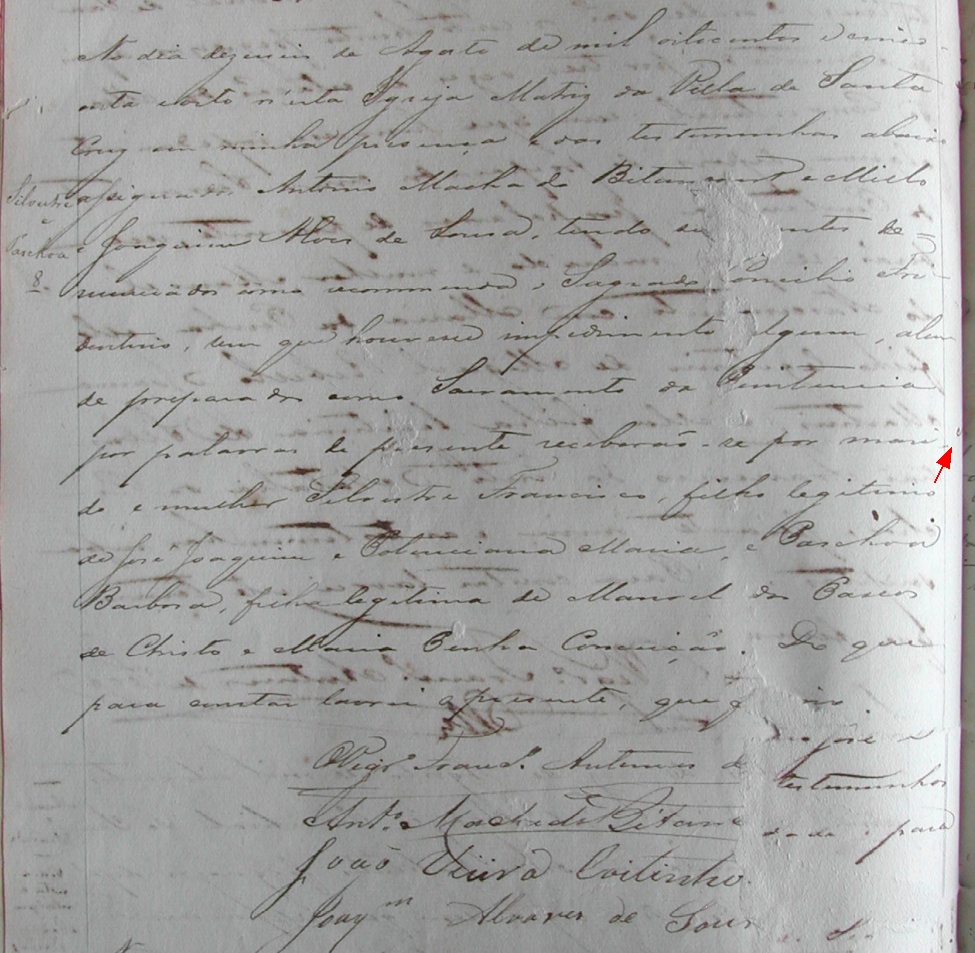 No dia dezseis de Agosto de mil oitocentos e cinco-
enta e oito n'esta Igreja Matriz da Villa de Santa
Cruz em minha presença e das testemunhas abaixo
Silvestre
e
Paschoa
8
assignados Antonio Machado Bitencourt e Mello
e Joaquim Alves de Sousa, tendo antes de=
nunciados como recommenda o Sagrado Concilio Tri
dentino, sem que houvesse impedimento algum, alem
de preparados com o Sacramento da Penitencia
por palavras de presente receberaõ-se por mari
do e mulher Silvestre Francisco, filho legitimo
de José Joaquim e Potenciana Maria, e Paschoa
Barbosa, filha legitima de Manoel dos Passos
de Christo e Maria Penha Conceição. Do que
para constar lavrei o presente, que
O Vigrº Francº. Antunes de
testemunhos
Antº. Machado Bitanc para
João Vieira Coitinho.
Joaqm Alvares de Sous